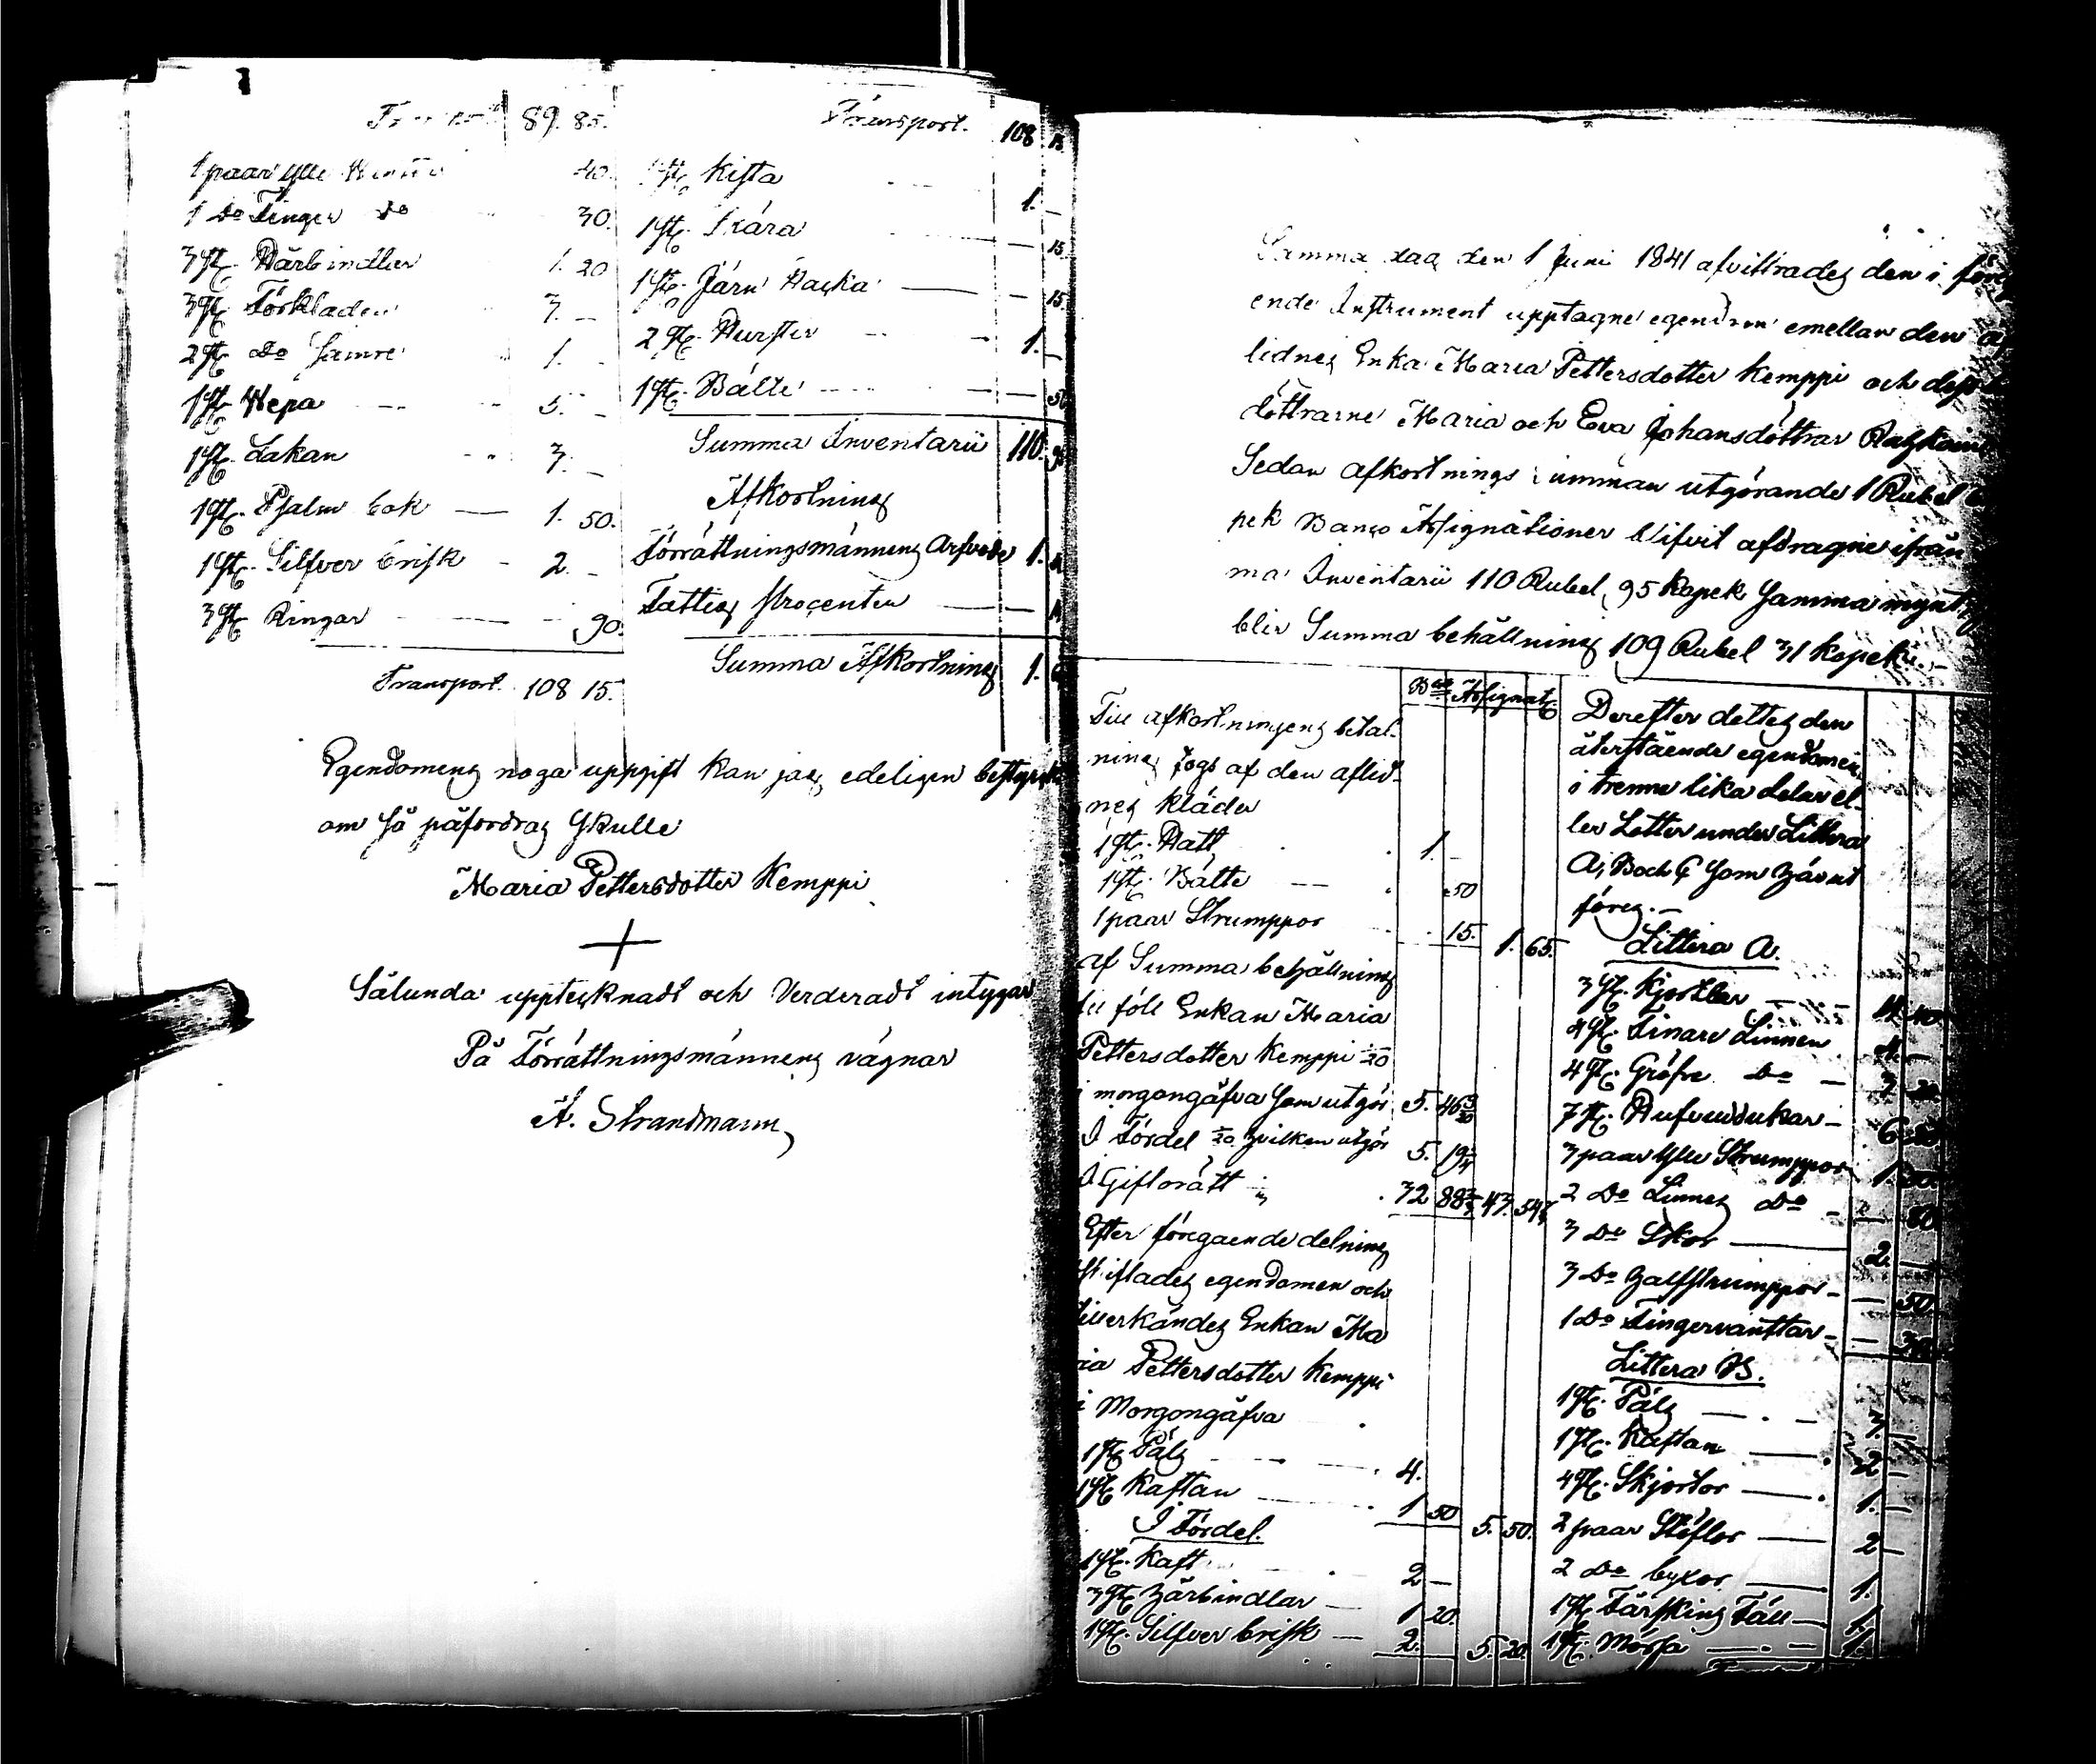 Transport 89. 85.
1 paar ylle 40.
1 Do Finger Do 30.
3 st. Hårbindlar 1. 20
3 st. Förkläden 3. —
2 st. Do Sämre 1. —
1 st. Wepa 5. —
1 st. Lakan 3. —
1 st. Psalm bok — 1. 50.
1 st. Silfver brisk — 2. —
3 st. Ringar — 90.
Transport. 108 15.
Transport. 108 15.
1 st. Kista 1. —
1 st. Skára — 15.
1 st. Járn Hacka — 15.
2 st. Hurstir 1. —
1 st. Bälte — 50
Summa Inventarii 110.
Afkortning
Förrättningsmännens Arfvode 1.
Fattig Procenten —
Summa Afkortning 1.
Egendomens noga uppgift kan jag edeligen bestyrka
om så påfordras skulle
Maria Pettersdotter Kemppi
+
Sålunda upptecknadt och Verderadt intygar
På Förrättningsmännens vägnar
A. Strandmann
Samma dag den 1 Juni 1841 afvittrades den i
ende Instrument upptagne egendom emellan den
lidnes Enka Maria Pettersdotter Kemppi och
döttrarne Maria och Eva Johansdöttrar
Sedan afkortnings summan utgörande 1 Rubel
pek Banco Assignationer blifvit afdragne ifrån
ma Inventarii 110 Rubel, 95 Kopek samma mynt,
blir Summa behållning 109 Rubel 31 Kopek. —
Bco Assignat.
Till afkortningens betal-
ning togs af den aflid-
nes kläder
1 st. Hatt 1. —
1 st. Bälte — 50
1 paar Strumppor 15. 1. 65.
af Summa behållning
till föll Enkan Maria
Pettersdotter Kemppi 1/20
i morgongåfva som utgör 5. 46 3/20
I Fördel 1/20 hvilken utgör 5. 19 3/4
I Giftorätt 1/3 32 88 43. 54
Efter föregaende delning
skiftades egendomen och
tillerkändes Enkan Ma
ria Pettersdotter Kemppi
i Morgongåfva
1 st. Päls 4.
1 st. Kaftan 1 50 5. 50.
I Fördel.
1 st. Kaft 2 —
3 st. hårbindlar — 1 20.
1 st. Silfver brisk — 2. 5. 20.
Derefter deltes den
återstående egendomen
i trenne lika delar el-
ler Lotter under Littera
A, B och C som här ut
föres. —
Littera A.
3 st. Kjortlar — 40
4 st. Finare Linnen 4. —
4 st. Gröfre Do — 3
7 st. Hufvuddukar — 6
3 paar Ylle Strumppor 1
2 Do Linnes Do — 80
3 Do Skor — 2. —
3 Do halfstrumppor — 50.
1 Do Fingervanttar — 30
Littera B.
1 st. Päls — 3
1 st. Kaftan — 2 —
4 st. Skjortor — 1. —
2 paar Stöflor — 2 —
2 Do byxor — 1.
1 st. Fårskins Fäll — 1
1 st. Mössa — 1.